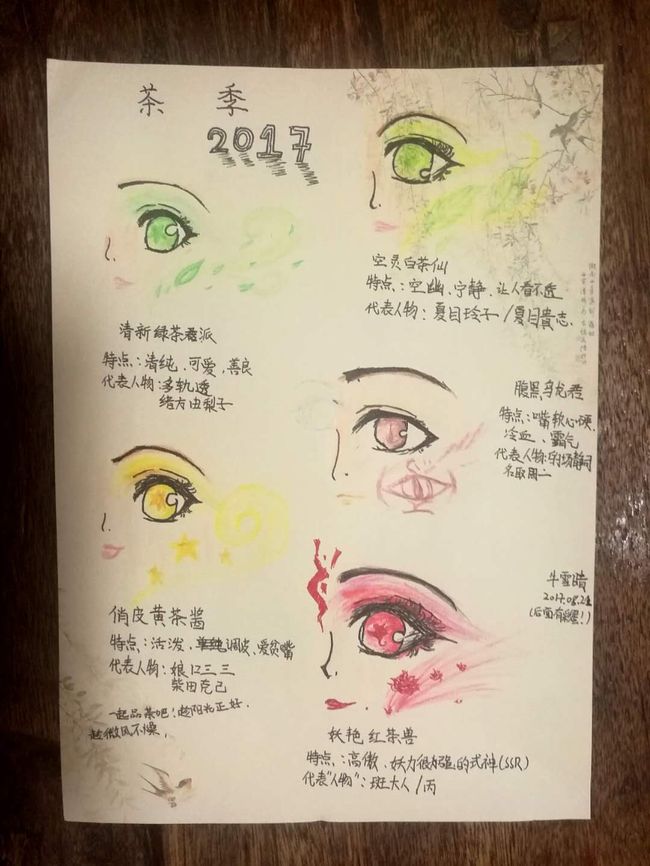 茶 季
2017
清新绿茶君派
特点：清纯、可爱、善良
代表人物：多轨透
绪方由梨子
空灵白茶仙
特点：空幽、宁静、让人看不透
代表人物：夏目玲子/夏目貴志
腹黑乌龙君
特点：嘴软心硬、
冷血、霸气
代表人物：的场静司
名取周一
俏皮黄茶酱
特点：活泼、单纯调皮、爱贫嘴
代表人物：娘口三三
柴田克己
一起品茶吧！趁阳光正好，
趁微风不燥，
牛雪晴
2017.08.24
(后面有彩蛋！)
妖艳红茶兽
特点：高傲、妖力很强的式神(SSR)
代表"人物"：斑大人/丙